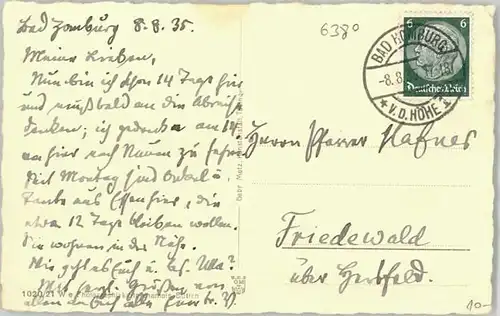 Bad Homburg 8.8.35.
Meine Lieben,
Nun bin ich schon 14 Tage hier
und muß bald an die Abreise
denken; ich gedenke am 14.
von hier nach Nauen zu fahren.
Seit Montag sind Onkel u.
Tante aus Essen hier, die
etwa 12 Tage bleiben wollen.
Sie wohnen in der Nähe.
Wie geht es Euch u. bes. Ulla?
Mit herzl. Grüßen von
allen an Euch alle Eure
6380
BAD HOMBURG
-8.8.
★ V.D. HÖHE
6 6
Deutsches Reich
Herrn Pfarrer Hafner
Friedewald
über Hersfeld.
Gebr. Metz
1030/21
10-